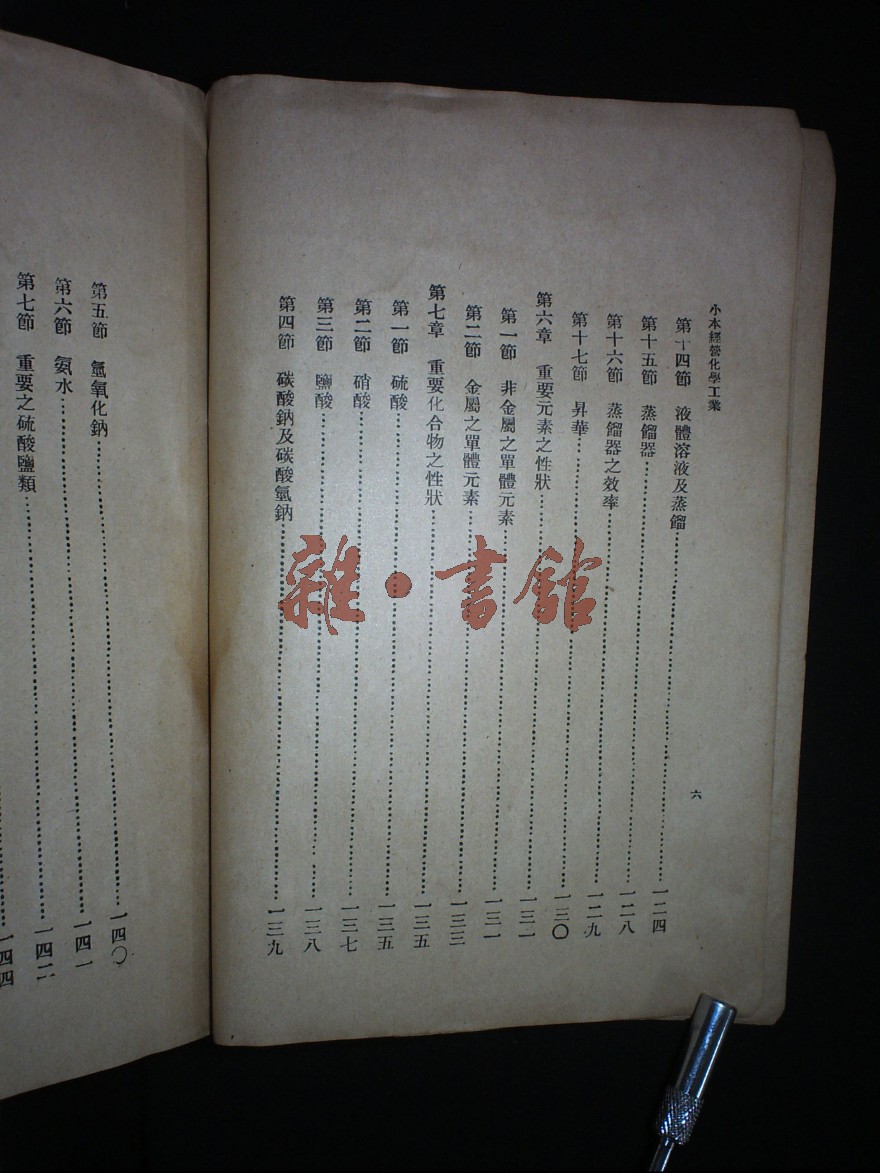 小本經營化學工業
六
第十四節　液體溶液及蒸餾……一二四
第十五節　蒸餾器……一二八
第十六節　蒸餾器之效率……一二九
第十七節　昇華……一三〇
第六章　重要元素之性狀……一三一
第一節　非金屬之單體元素……一三一
第二節　金屬之單體元素……一三三
第七章　重要化合物之性狀……一三五
第一節　硫酸……一三五
第二節　硝酸……一三七
第三節　鹽酸……一三八
第四節　碳酸鈉及碳酸氫鈉……一三九
第五節　氫氧化鈉……一四〇
第六節　氨水……一四一
第七節　重要之硫酸鹽類……一四二
一四四
雜·書館